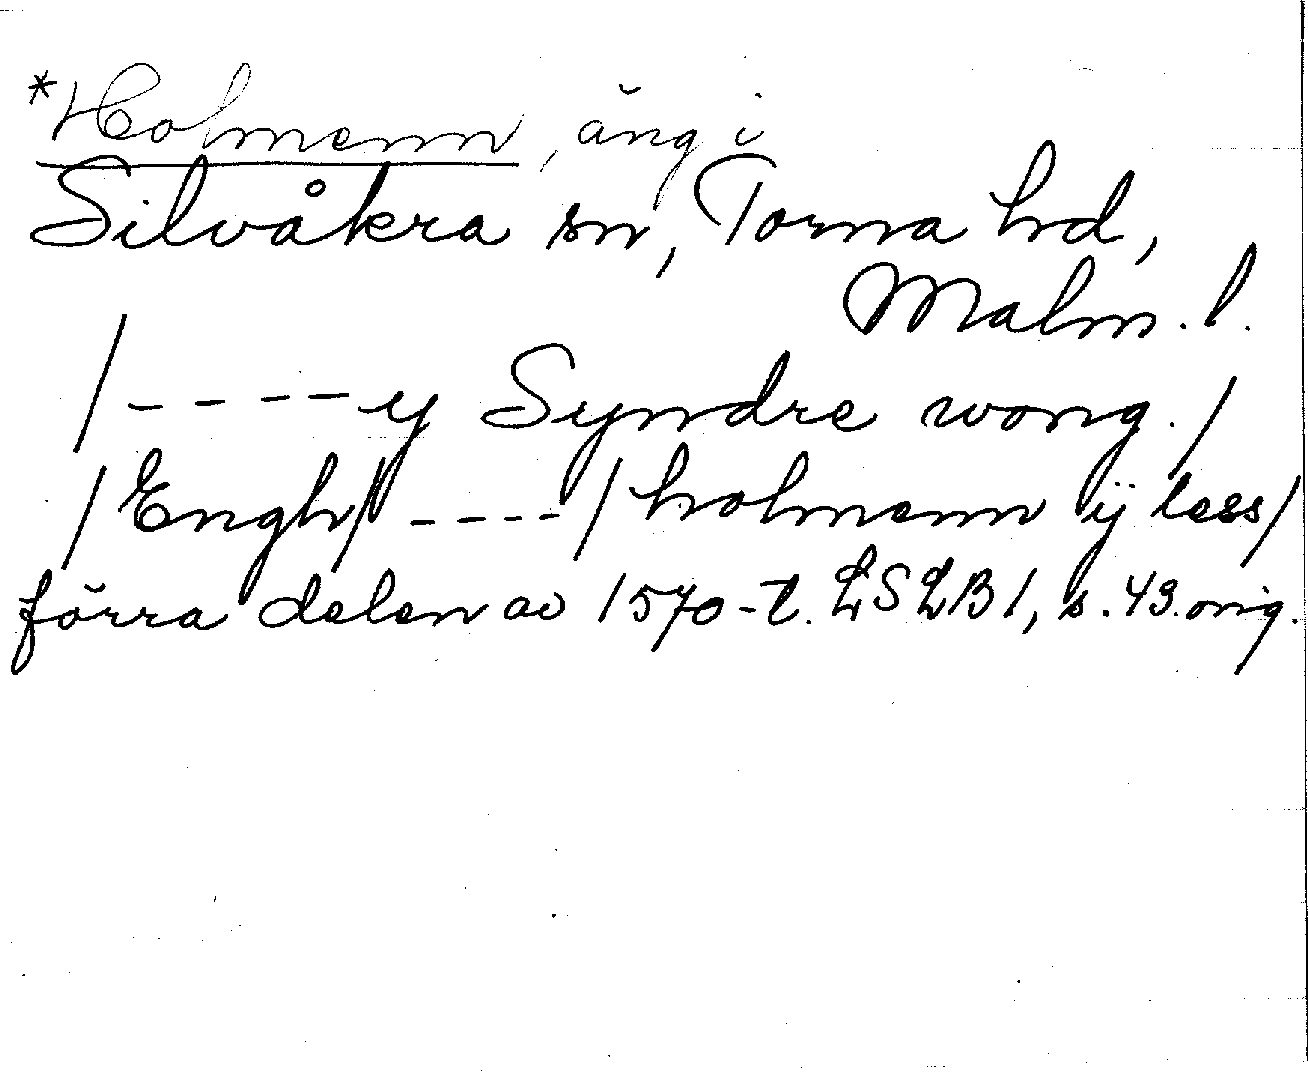 *Holmenn, äng i
Silvåkra sn, Torna hd,
Malm. l.
/----y Syndre wong./
/Engh/----/holmenn ÿ less/
förra delen av 1570-t. LSLB1, s. 43. orig.